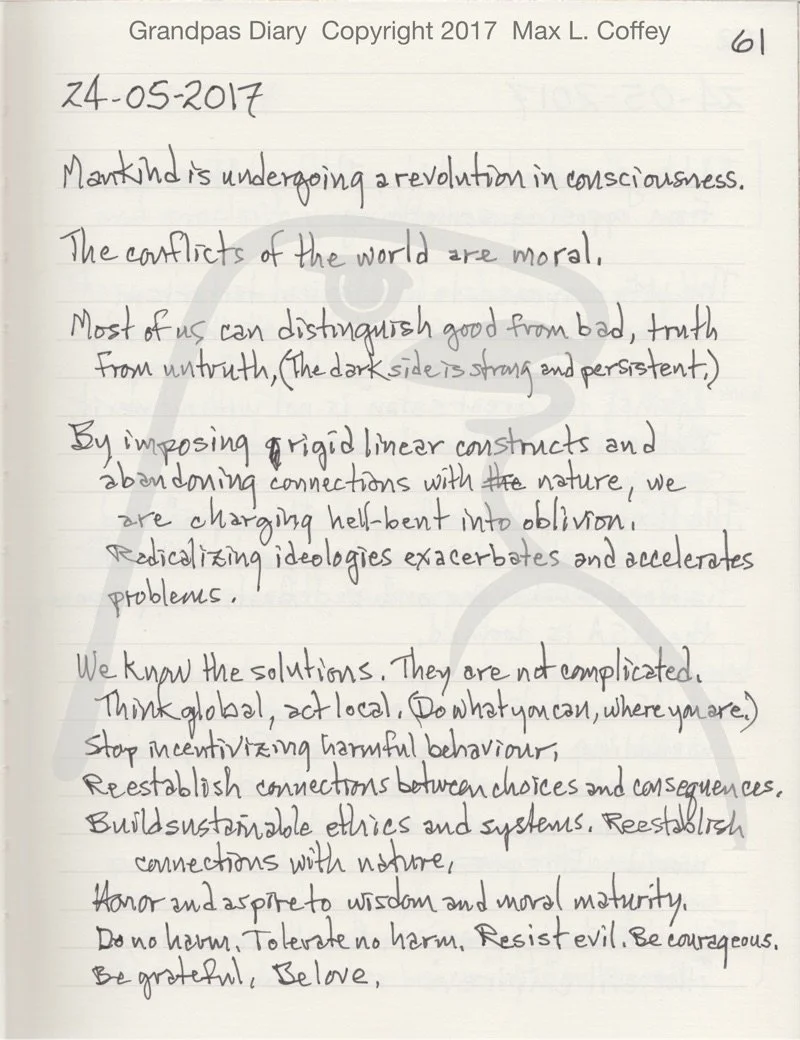 Grandpas Diary Copyright 2017 Max L. Coffey
61
24-05-2017
Mankind is undergoing a revolution in consciousness.
The conflicts of the world are moral.
Most of us can distinguish good from bad, truth
from untruth, (The dark side is strong and persistent.)
By imposing rigid linear constructs and
abandoning connections with the nature, we
are charging hell-bent into oblivion.
Radicalizing ideologies exacerbates and accelerates
problems.
We know the solutions. They are not complicated.
Think global, act local. (Do what you can, where you are.)
Stop incentivizing harmful behaviour,
Reestablish connections between choices and consequences.
Build sustainable ethics and systems. Reestablish
connections with nature,
Honor and aspire to wisdom and moral maturity.
Do no harm. Tolerate no harm. Resist evil. Be courageous.
Be grateful, Be love,